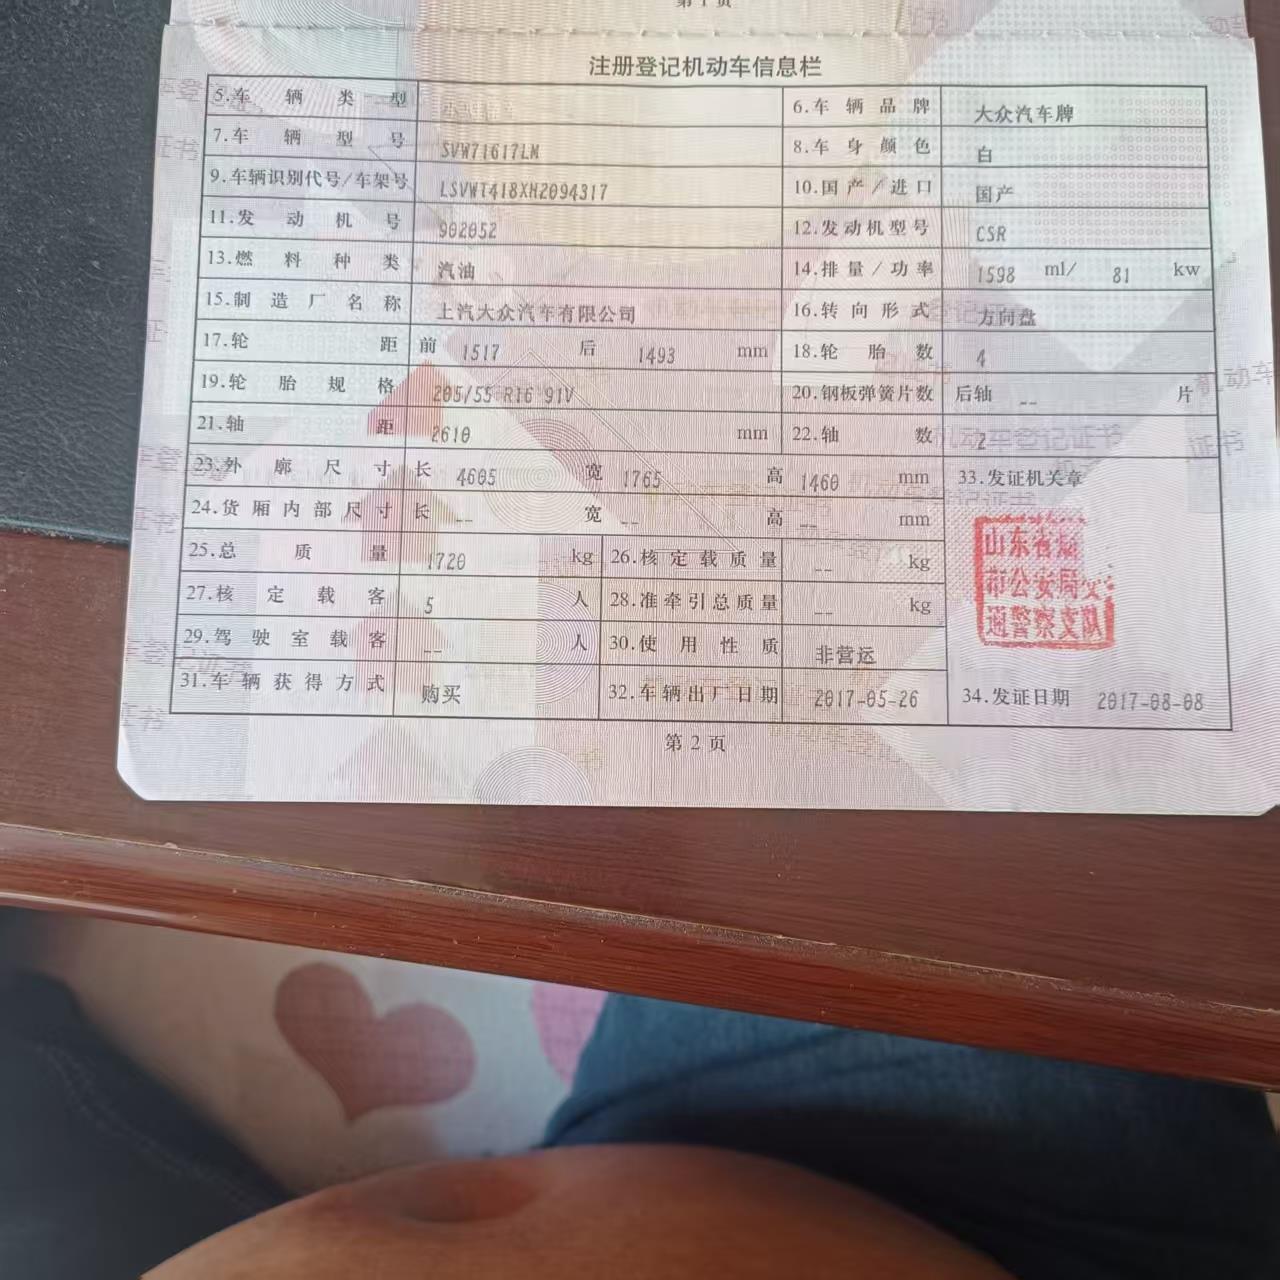 第1页
注册登记机动车信息栏
5.车辆类型 6.车辆品牌 大众汽车牌
7.车辆型号 SVW71617LM 8.车身颜色 白
9.车辆识别代号/车架号 LSVWT418XH2094317 10.国产/进口 国产
11.发动机号 902052 12.发动机型号 CSR
13.燃料种类 汽油 14.排量/功率 1598 ml/ 81 kw
15.制造厂名称 上汽大众汽车有限公司 16.转向形式 方向盘
17.轮距 前 1517 后 1493 mm 18.轮胎数 4
19.轮胎规格 205/55 R16 91V 20.钢板弹簧片数 后轴 -- 片
21.轴距 2610 mm 22.轴数 2
23.外廓尺寸 长 4605 宽 1765 高 1460 mm 33.发证机关章
24.货厢内部尺寸 长 -- 宽 -- 高 -- mm
山东省
25.总质量 1720 kg 26.核定载质量 -- kg
市公安局交
27.核定载客 5 人 28.准牵引总质量 -- kg
通警察支队
29.驾驶室载客 -- 人 30.使用性质 非营运
31.车辆获得方式 购买 32.车辆出厂日期 2017-05-26 34.发证日期 2017-08-08
第2页